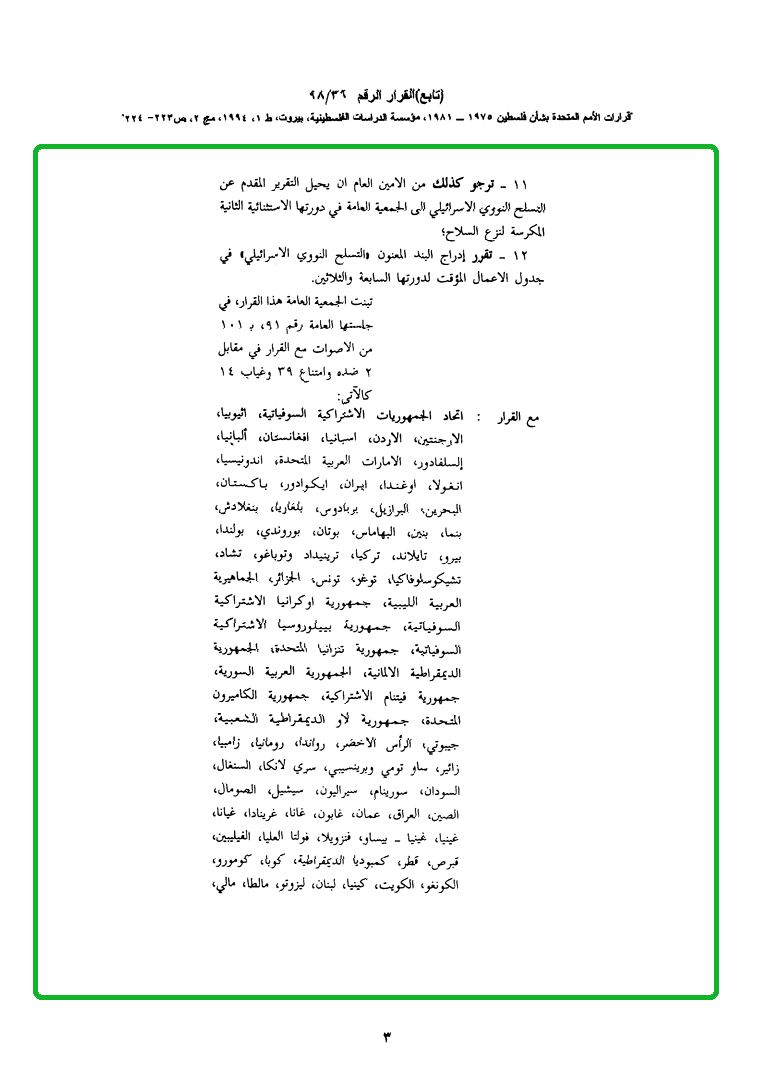 (تابع)القرار الرقم ٩٨/٣٦
"قرارات الأمم المتحدة بشأن فلسطين ١٩٧٥ ــ ١٩٨١، مؤسسة الدراسات الفلسطينية، بيروت، ط ١، ١٩٩٤، مج ٢، ص٢٢٣- ٢٢٤"
١١ ـ ترجو كذلك من الامين العام ان يحيل التقرير المقدم عن
التسلح النووي الاسرائيلي الى الجمعية العامة في دورتها الاستثنائية الثانية
المكرسة لنزع السلاح؛
١٢ ـ تقرر إدراج البند المعنون «التسلح النووي الاسرائيلي» في
جدول الاعمال المؤقت لدورتها السابعة والثلاثين.
تبنت الجمعية العامة هذا القرار، في
جلستها العامة رقم ٩١، بـ ١٠١
من الاصوات مع القرار في مقابل
٢ ضده وامتناع ٣٩ وغياب ١٤
كالآتي:
مع القرار : اتحاد الجمهوريات الاشتراكية السوفياتية، اثيوبيا،
الارجنتين، الاردن، اسبانيا، افغانستان، ألبانيا،
إلسلفادور، الامارات العربية المتحدة، اندونيسيا،
انغولا، اوغندا، ايران، ايكوادور، باكستان،
البحرين، البرازيل، بربادوس، بلغاريا، بنغلادش،
بنما، بنين، البهاماس، بوتان، بوروندي، بولندا،
بيرو، تايلاند، تركيا، ترينيداد وتوباغو، تشاد،
تشيكوسلوفاكيا، توغو، تونس، الجزائر، الجماهيرية
العربية الليبية، جمهورية اوكرانيا الاشتراكية
السوفياتية، جمهورية بييلوروسيا الاشتراكية
السوفياتية، جمهورية تنزانيا المتحدة، الجمهورية
الديمقراطية الالمانية، الجمهورية العربية السورية،
جمهورية فيتنام الاشتراكية، جمهورية الكاميرون
المتحدة، جمهورية لاو الديمقراطية الشعبية،
جيبوتي، الرأس الاخضر، رواندا، رومانيا، زامبيا،
زائير، ساو تومي وبرينسيبي، سري لانكا، السنغال،
السودان، سورينام، سيراليون، سيشيل، الصومال،
الصين، العراق، عمان، غابون، غانا، غرينادا، غيانا،
غينيا، غينيا ـ بيساو، فنزويلا، فولتا العليا، الفيليبين،
قبرص، قطر، كمبوديا الديمقراطية، كوبا، كومورو،
الكونغو، الكويت، كينيا، لبنان، ليزوتو، مالطا، مالي،
٣